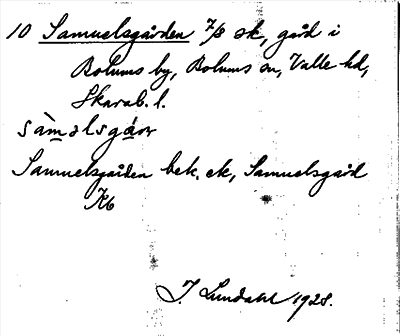 10 Samuelsgården 7/8 ek, gård i
Bolums by, Bolums sn, Valle hd,
Skarab. l.
sàməlsgáɳ
Samuelsgården bek. ek, Samuelsgård
Kb
J. Lundahl 1928.